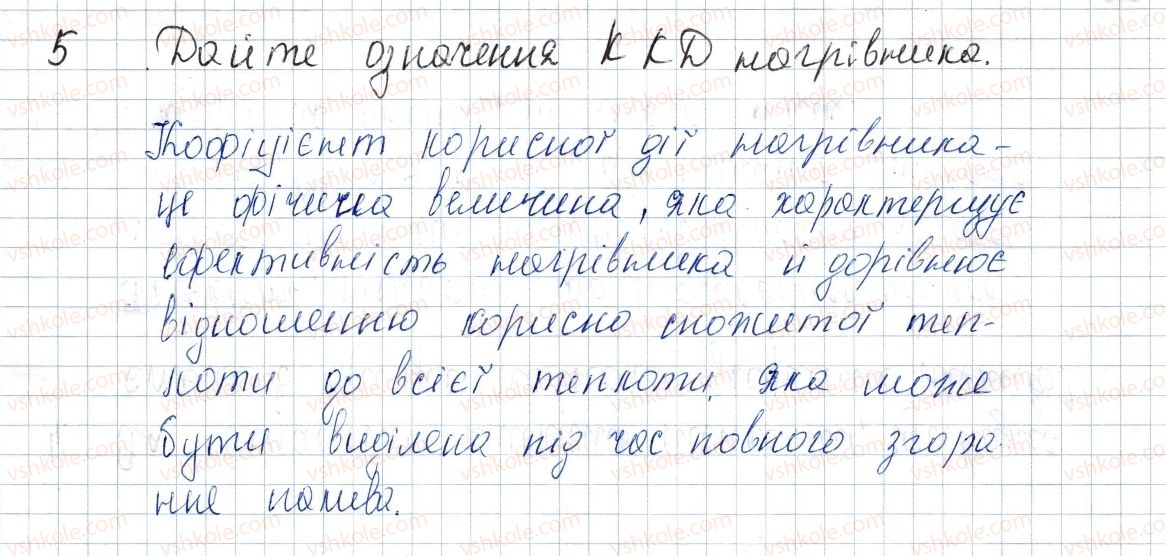 5 Дайте означення ККД нагрівника.
Коофіцієнт корисної дії нагрівника -
це фізична величина, яка характеризує
ефективність нагрівника й дорівнює
відношенню корисно спожитої теп-
лоти до всієї теплоти, яка може
бути виділена під час повного згора-
ння палива.